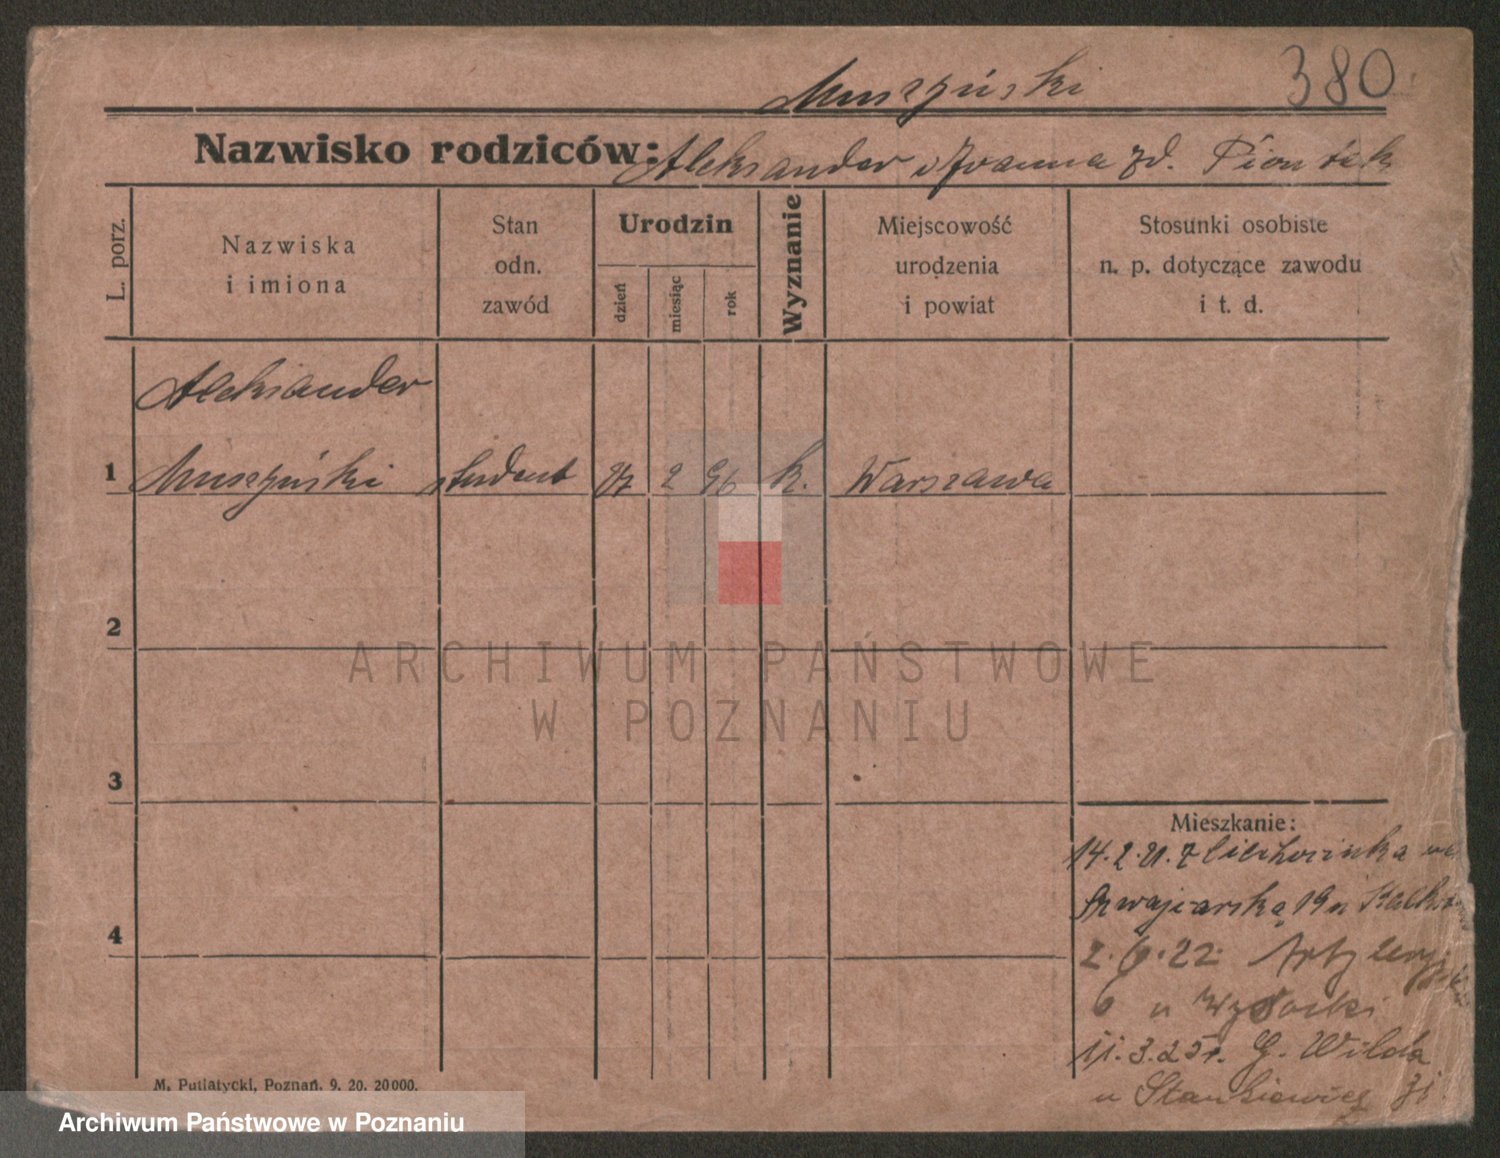 Muszyński 380
Nazwisko rodziców: Aleksander i Joanna zd. Piontek
L. porz.
Nazwiska
i imiona
Stan
odn.
zawód
Urodzin
dzień
miesiąc
rok
Wyznanie
Miejscowość
urodzenia
i powiat
Stosunki osobiste
n. p. dotyczące zawodu
i t. d.
Aleksander
1 Muszyński student 2 96 k. Warszawa
2
3
4
Mieszkanie:
14.2.21. z Ciechocinka
Szwajcarska 19 u
2.6.22
6 u Wysocki
11.3.25r. G. Wilda
u Stankiewicz
M. Putiatycki, Poznań. 9. 20. 20000.
ARCHIWUM PAŃSTWOWE
W POZNANIU
Archiwum Państwowe w Poznaniu